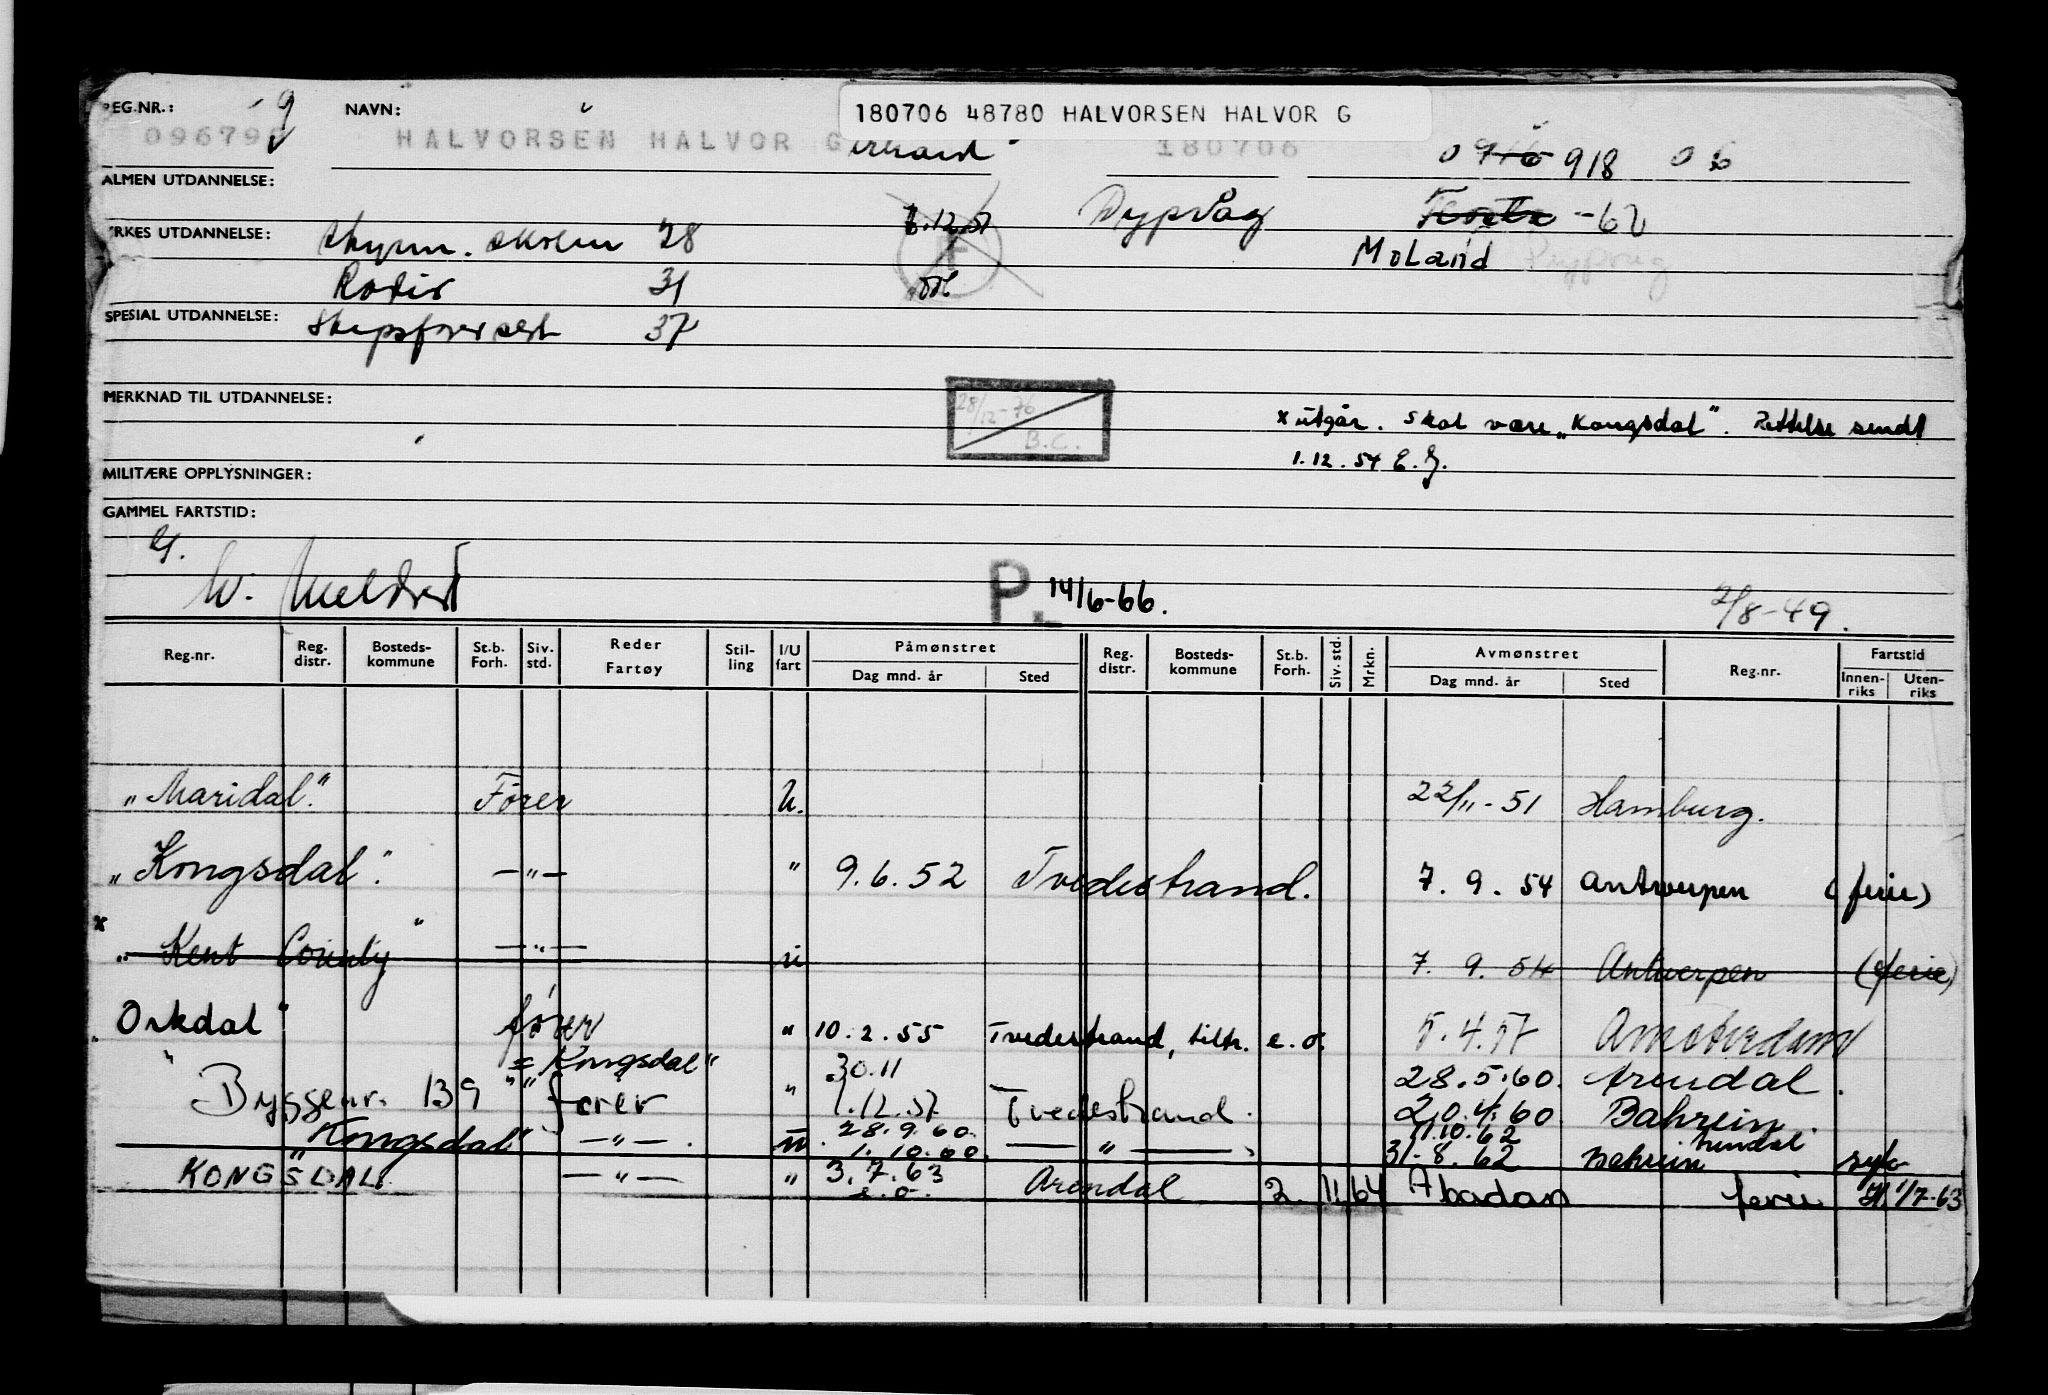 REG.NR.: 9 NAVN: 180706 48780 HALVORSEN HALVOR G
096799 HALVORSEN HALVOR Gerhard 180706 0916 918 06
ALMEN UTDANNELSE:
7.12.51 Dypvåg -62
YRKES UTDANNELSE: styrm. skolen 28 F Moland Dypvåg
Radio 31
SPESIAL UTDANNELSE: Skipsførerekst 37
MERKNAD TIL UTDANNELSE: 28/12-76 B.C. x utgår. Skal være „Kongsdal". Rettelse sendt
1.12.54 E.G.
MILITÆRE OPPLYSNINGER:
GAMMEL FARTSTID:
G.
W. Meldret P. 14/6-66. 2/8-49.
Reg.nr. Reg. distr. Bosteds-kommune St.b. Forh. Siv. std. Reder Fartøy Stil-ling I/U fart Påmønstret Dag mnd. år Sted Reg. distr. Bosteds-kommune St.b. Forh. Siv. std. Mrkn. Avmønstret Dag mnd. år Sted Reg.nr. Fartstid Innen-riks Uten-riks
„Maridal." Fører U. 22/11-51 Hamburg.
„Kongsdal." —„— " 9.6.52 Tvedestrand. 7.9.54 Antwerpen (ferie)
x „Kent County" —„— u 7.9.54 Antwerpen (ferie)
„Orkdal" fører " 10.2.55 Tvedestrand, tiltr. e.o. 5.4.57 Amsterdam
= Kongsdal" 30.11 28.5.60. Arendal.
"Byggenr. 139" fører " 1.12.57 Tvedestrand. 20.4.60 Bahrein.
28.9.60 11.10.62 Arendal
„Kongsdal" —„—. u. 1.10.60. —„— 31-8.62 Bahrein syk
KONGSDAL —„— " 3.7.63 Arendal 2.11.64 Abadan ferie 1/7-63
e.o.